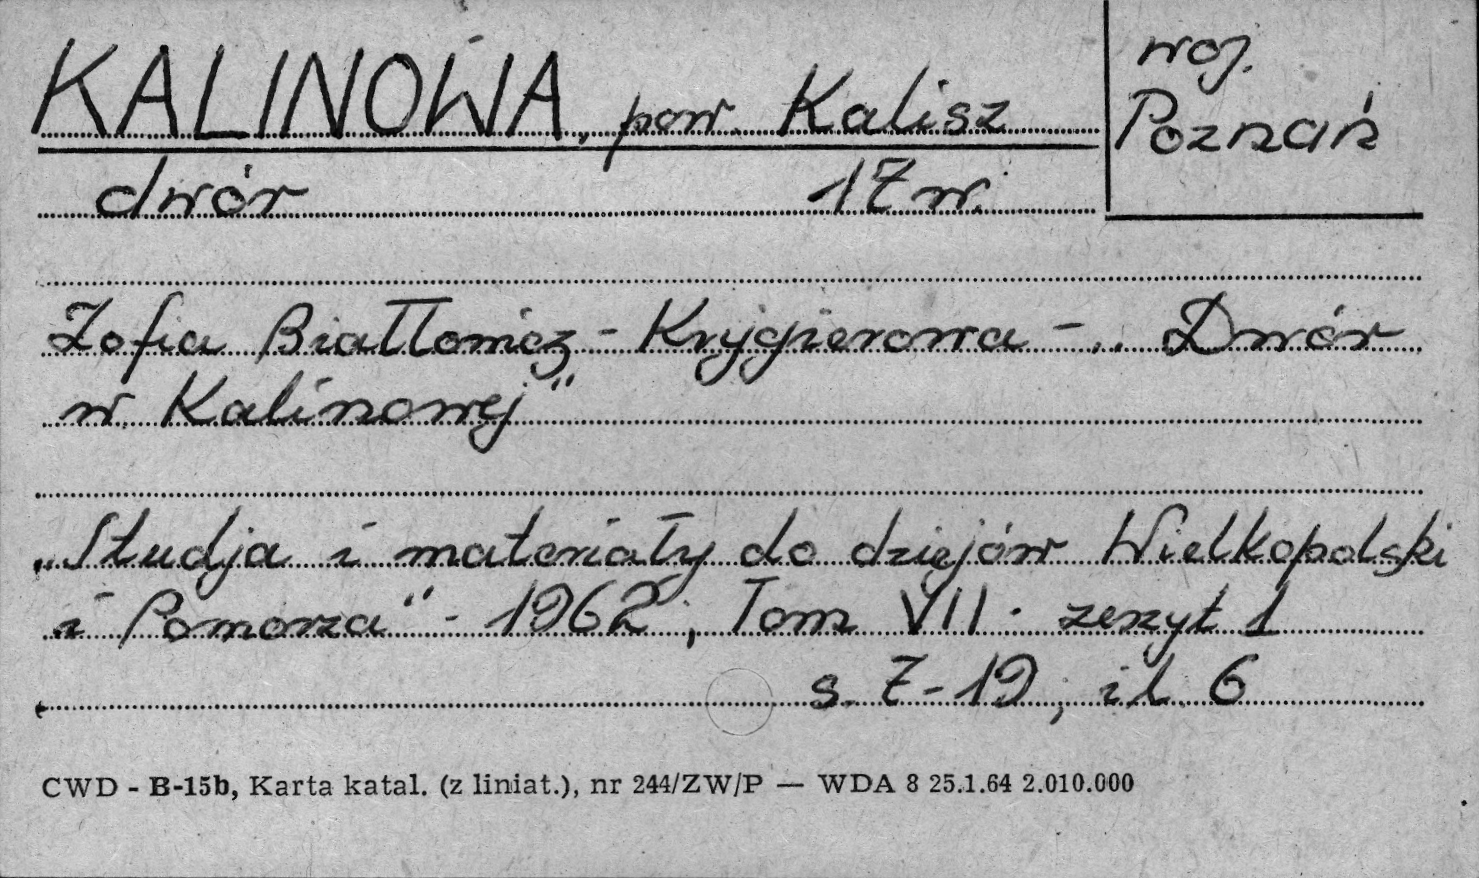 KALINOWA, pow. Kalisz
woj.
Poznań
dwór 17 w.
Zofia Białłowicz - Krygierowa - „Dwór
w Kalinowej"
„Studja i materiały do dziejów Wielkopolski
i Pomorza" - 1962, Tom VII. zeszyt 1
s. 7-19, il. 6
CWD - B-15b, Karta katal. (z liniat.), nr 244/ZW/P — WDA 8 25.1.64 2.010.000